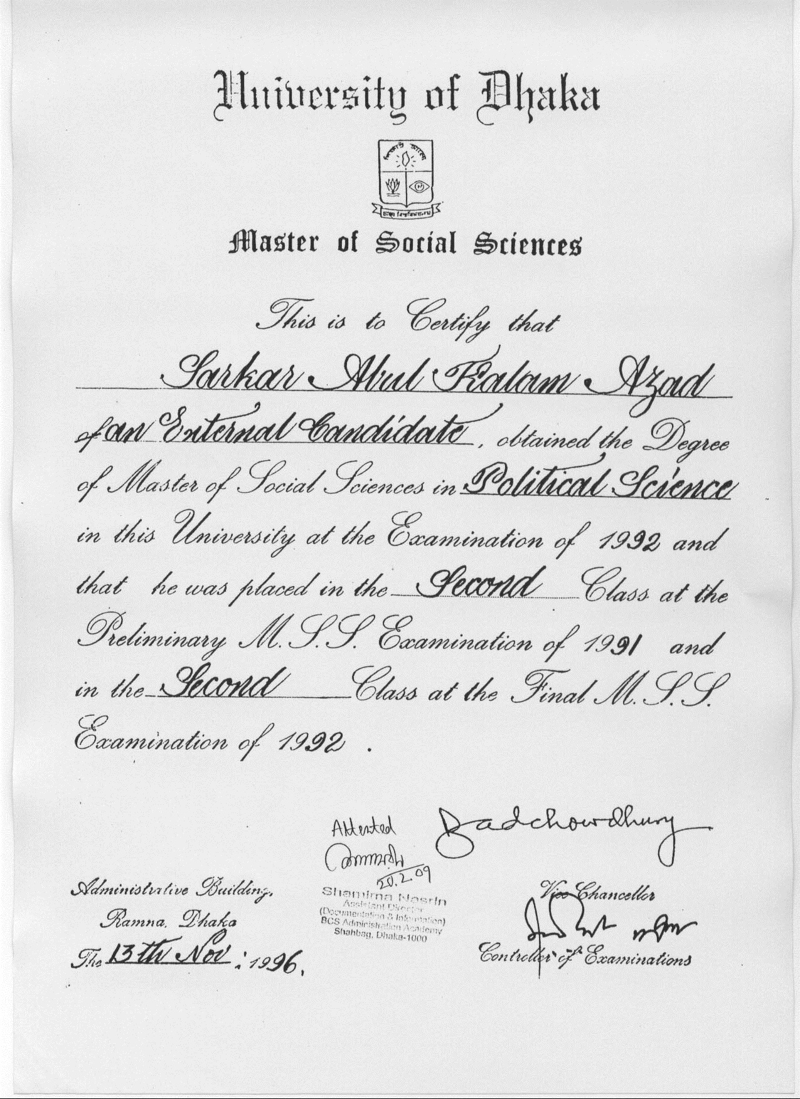 University of Dhaka
Master of Social Sciences
This is to Certify that
Sarkar Abul Kalam Azad
of an External Candidate, obtained the Degree
of Master of Social Sciences in Political Science
in this University at the Examination of 1992 and
that he was placed in the Second Class at the
Preliminary M.S.S. Examination of 1991 and
in the Second Class at the Final M.S.S.
Examination of 1992 .
Attested
20.2.09
Shamima Nasrin
Assistant Director
(Documentation & Information)
BCS Administration Academy
Shahbag, Dhaka-1000
Administrative Building,
Ramna, Dhaka
The 13th Nov: 1996.
Vice Chancellor
Controller of Examinations